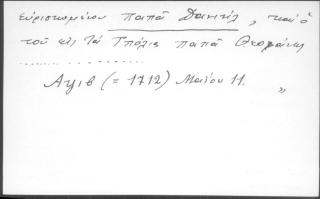 εὑρισκομένου παπᾶ Δανιήλ, καὶ ὁ
τοῦ εἰς Τὰ παπᾶ
.....................
Αψιβ (= 1712) Μαΐου 11. "